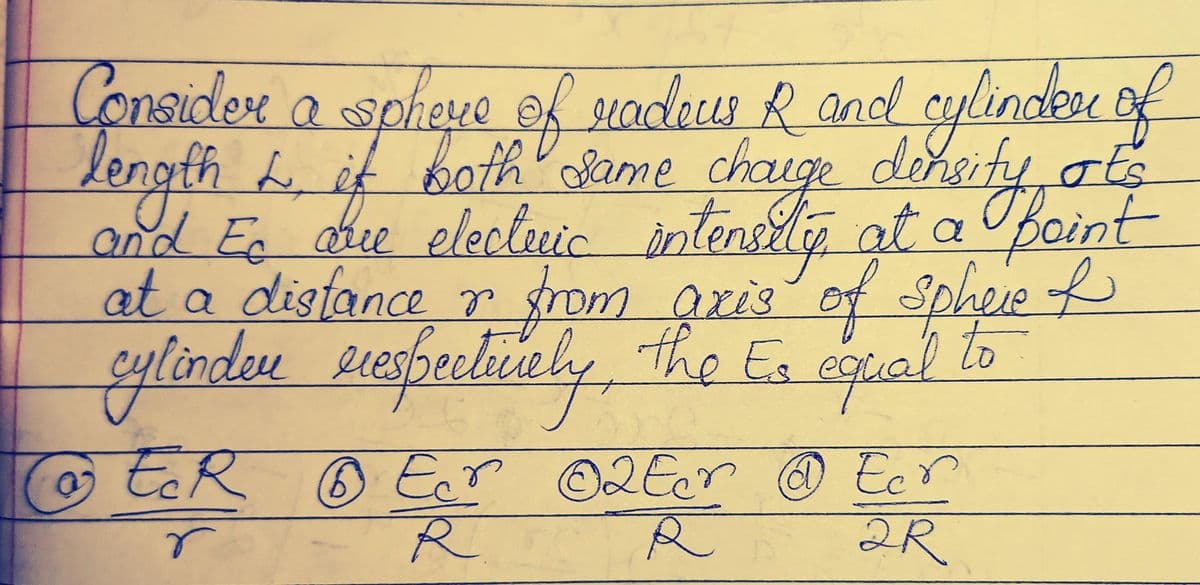 Consider a sphere of radius R and cylinder of
length L, if both same charge density σ Es
and Ec are electric intensity, at a point
at a distance r from axis of sphere &
cylinder respectively, the Es equal to
(a) EcR/r (b) Ecr/R (c) 2Ecr/R (d) Ecr/2R